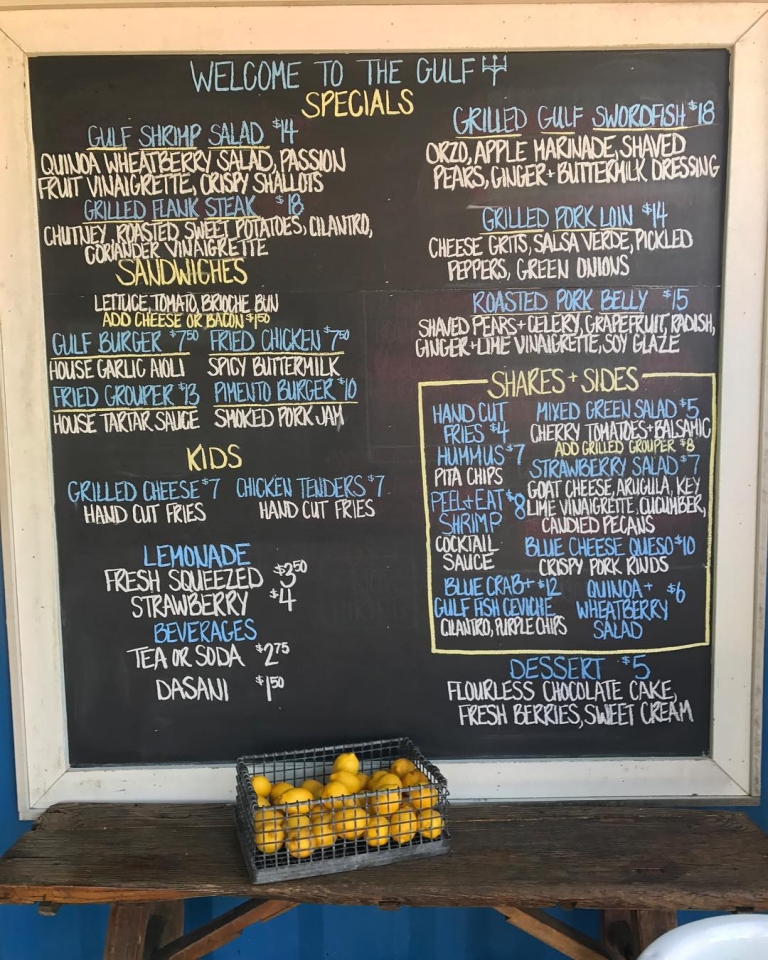 WELCOME TO THE GULF
SPECIALS
GULF SHRIMP SALAD $14
QUINOA WHEATBERRY SALAD, PASSION
FRUIT VINAIGRETTE, CRISPY SHALLOTS
GRILLED FLANK STEAK $18
CHUTNEY, ROASTED SWEET POTATOES, CILANTRO,
CORIANDER VINAIGRETTE
GRILLED GULF SWORDFISH $18
ORZO, APPLE MARINADE, SHAVED
PEARS, GINGER + BUTTERMILK DRESSING
GRILLED PORK LOIN $14
CHEESE GRITS, SALSA VERDE, PICKLED
PEPPERS, GREEN ONIONS
ROASTED PORK BELLY $15
SHAVED PEARS + CELERY, GRAPEFRUIT, RADISH,
GINGER + LIME VINAIGRETTE, SOY GLAZE
SANDWICHES
LETTUCE, TOMATO, BRIOCHE BUN
ADD CHEESE OR BACON $1.50
GULF BURGER $7.50 FRIED CHICKEN $7.50
HOUSE GARLIC AIOLI SPICY BUTTERMILK
FRIED GROUPER $13 PIMENTO BURGER $10
HOUSE TARTAR SAUCE SMOKED PORK JAM
KIDS
GRILLED CHEESE $7 CHICKEN TENDERS $7
HAND CUT FRIES HAND CUT FRIES
LEMONADE
FRESH SQUEEZED $3.50
STRAWBERRY $4
BEVERAGES
TEA OR SODA $2.75
DASANI $1.50
SHARES + SIDES
HAND CUT
FRIES $4
HUMMUS $7
PITA CHIPS
PEEL + EAT $8
SHRIMP
COCKTAIL
SAUCE
MIXED GREEN SALAD $5
CHERRY TOMATOES + BALSAMIC
ADD GRILLED GROUPER $8
STRAWBERRY SALAD $7
GOAT CHEESE, ARUGULA, KEY
LIME VINAIGRETTE, CUCUMBER,
CANDIED PECANS
BLUE CHEESE QUESO $10
CRISPY PORK RINDS
BLUE CRAB + $12
GULF FISH CEVICHE
CILANTRO, PURPLE CHIPS
QUINOA + $6
WHEATBERRY
SALAD
DESSERT $5
FLOURLESS CHOCOLATE CAKE,
FRESH BERRIES, SWEET CREAM